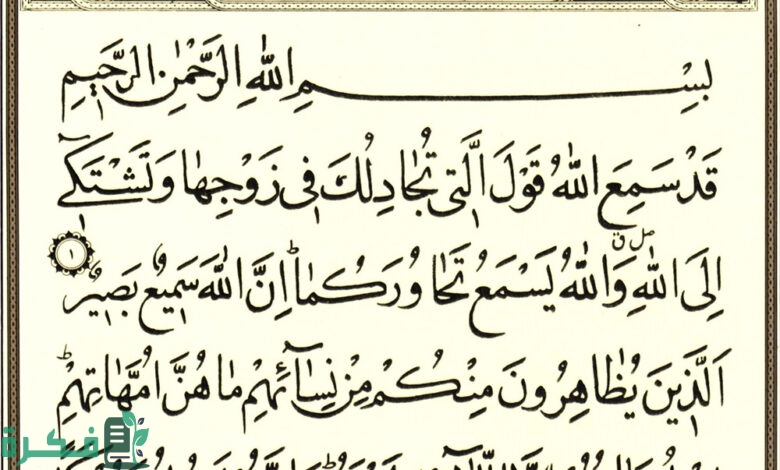 بِسْمِ اللهِ الرَّحْمٰنِ الرَّحِيمِ
قَدْ سَمِعَ اللهُ قَوْلَ الَّتِي تُجَادِلُكَ فِي زَوْجِهَا وَتَشْتَكِي
إِلَى اللهِ وَاللهُ يَسْمَعُ تَحَاوُرَكُمَا إِنَّ اللهَ سَمِيعٌ بَصِيرٌ ١
اَلَّذِينَ يُظَاهِرُونَ مِنْكُمْ مِنْ نِسَائِهِمْ مَا هُنَّ أُمَّهَاتِهِمْ
فكرة